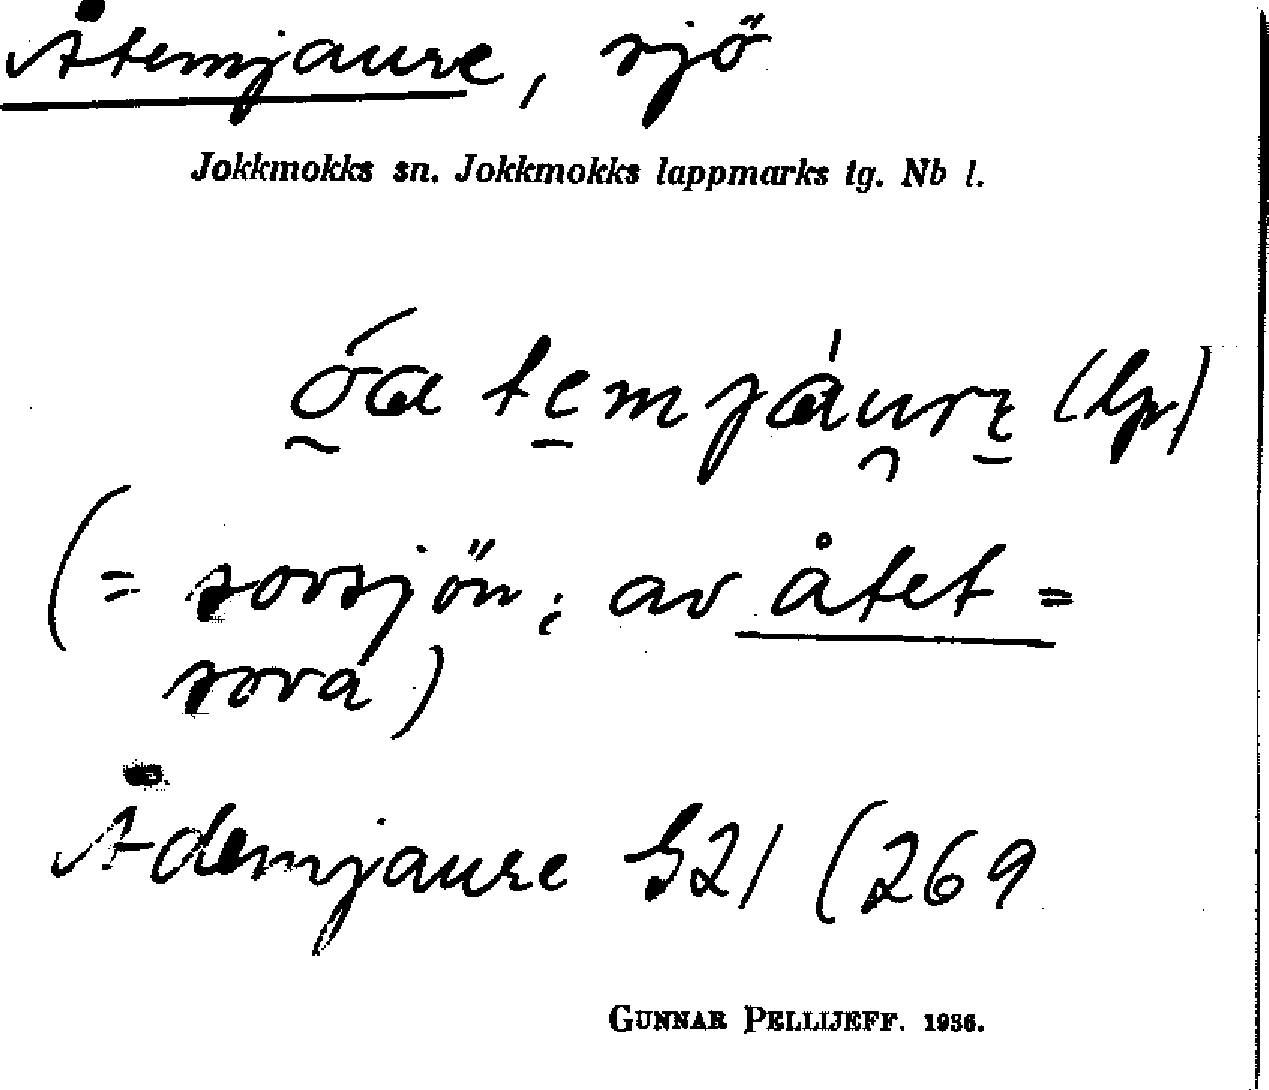 Åtemjaure, sjö
Jokkmokks sn. Jokkmokks lappmarks tg. Nb l.
óa temjáure (lp)
(= sovsjön; av åtet =
sova)
Ådemjaure G21 (269
GUNNAR PELLIJEFF. 1936.